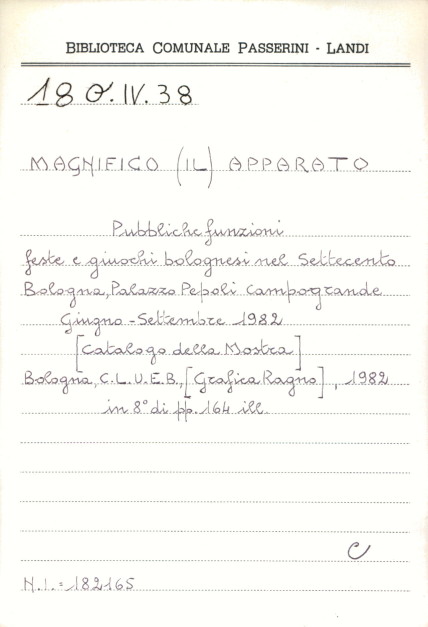 BIBLIOTECA COMUNALE PASSERINI - LANDI
18 O.IV.38
MAGNIFICO (IL) APPARATO
Pubbliche funzioni
feste e giuochi bolognesi nel Settecento
Bologna, Palazzo Pepoli Campogrande
Giugno - Settembre 1982
[Catalogo della Mostra]
Bologna, C.L.U.E.B., [Grafica Ragno], 1982
in 8° di pp. 164 ill.
C
N.I. = 182165